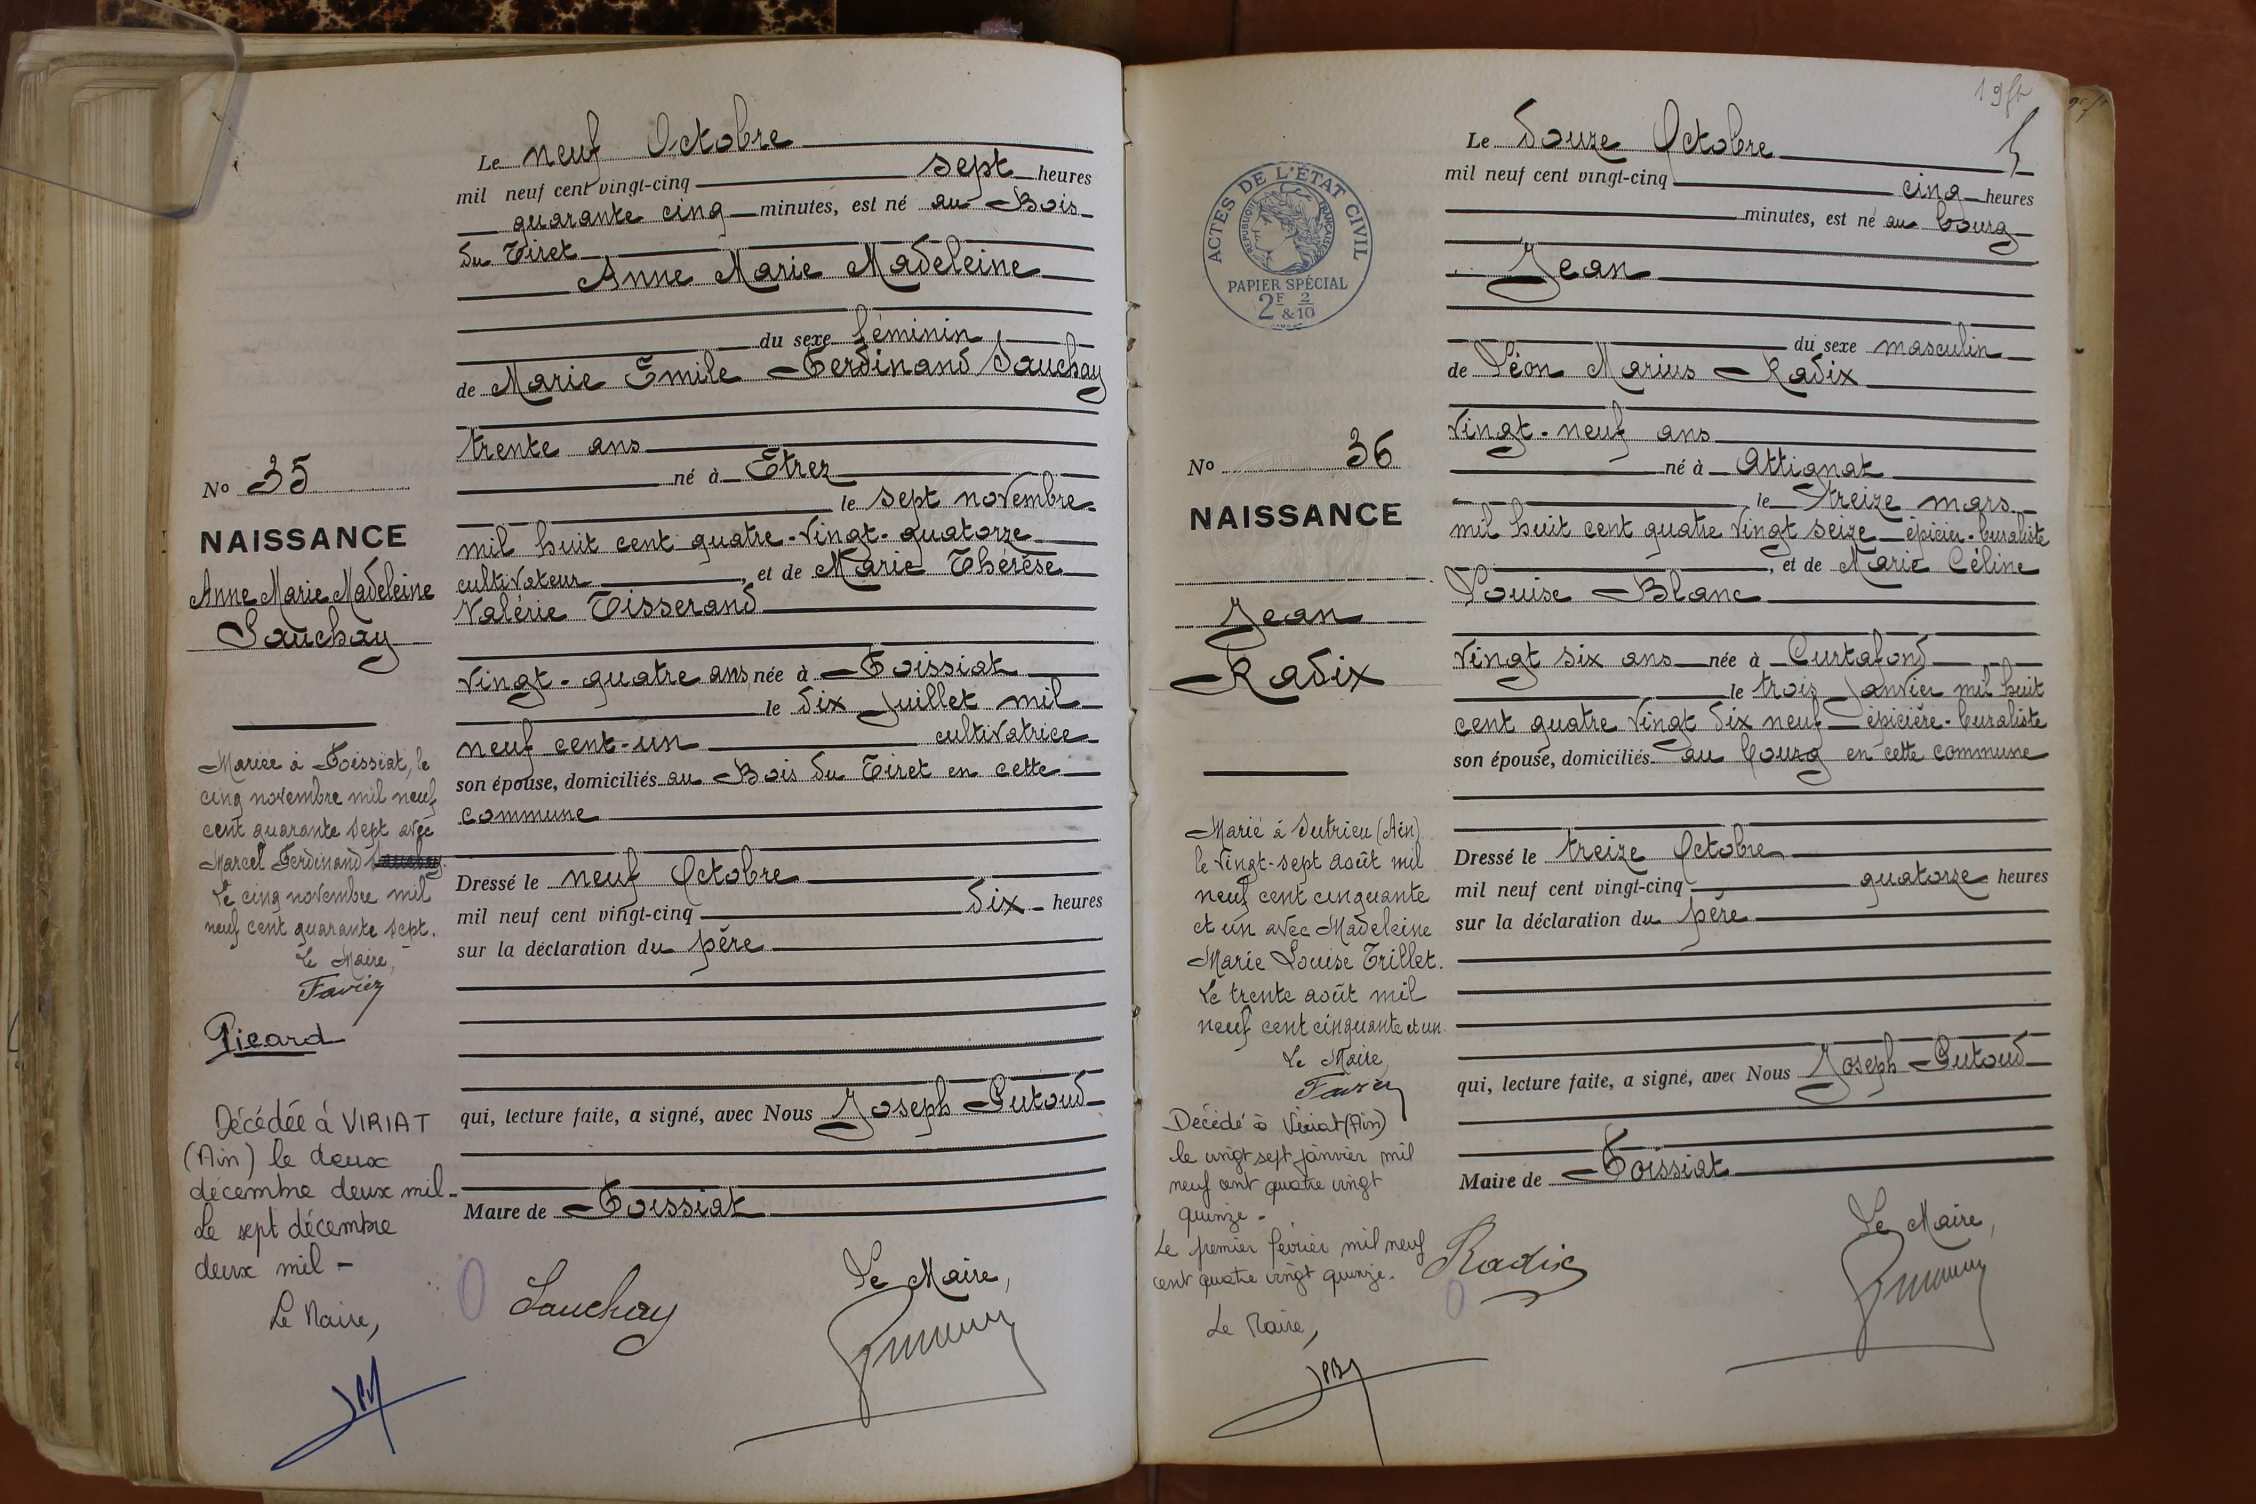 Le neuf Octobre
mil neuf cent vingt-cinq sept heures
quarante cinq minutes, est né au Bois
du Tiret
Anne Marie Madeleine
du sexe féminin
de Marie Emile Ferdinand Sauchay
trente ans
né à Etrez
le sept novembre
mil huit cent quatre-vingt-quatorze
cultivateur, et de Marie Thérèse
Valérie Tisserand
vingt-quatre ans, née à Foissiat
le dix juillet mil
neuf cent-un cultivatrice
son épouse, domiciliés au Bois du Tiret en cette
commune
Dressé le neuf Octobre
mil neuf cent vingt-cinq dix heures
sur la déclaration du père
qui, lecture faite, a signé, avec Nous Joseph Putoud
Maire de Foissiat
Sauchay
Le Maire,
No 35
NAISSANCE
Anne Marie Madeleine
Sauchay
Mariée à Foissiat, le
cinq novembre mil neuf
cent quarante sept avec
Marcel Ferdinand
Le cinq novembre mil
neuf cent quarante sept.
Le Maire,
Favier
Picard
Décédée à VIRIAT
(Ain) le deux
décembre deux mil -
Le sept décembre
deux mil -
Le Maire,
19
Le douze Octobre
mil neuf cent vingt-cinq cinq heures
minutes, est né au bourg
Jean
du sexe masculin
de Léon Marius Radix
vingt-neuf ans
né à Attignat
le treize mars
mil huit cent quatre vingt seize épicier-buraliste
, et de Marie Céline
Louise Blanc
vingt six ans née à Curtafond
le trois janvier mil huit
cent quatre vingt dix neuf épicière-buraliste
son épouse, domiciliés au bourg en cette commune
Dressé le treize Octobre
mil neuf cent vingt-cinq quatorze heures
sur la déclaration du père
qui, lecture faite, a signé, avec Nous Joseph Putoud
Maire de Foissiat
Radix
Le Maire,
ACTES DE L'ÉTAT CIVIL
RÉPUBLIQUE FRANÇAISE
PAPIER SPÉCIAL
2F & 2/10
No 36
NAISSANCE
Jean
Radix
Marié à Sutrieu (Ain)
le vingt-sept août mil
neuf cent cinquante
et un avec Madeleine
Marie Louise Trillet.
Le trente août mil
neuf cent cinquante et un
Le Maire,
Favier
Décédé à Viriat (Ain)
le vingt sept janvier mil
neuf cent quatre vingt
quinze -
Le premier février mil neuf
cent quatre vingt quinze.
Le Maire,